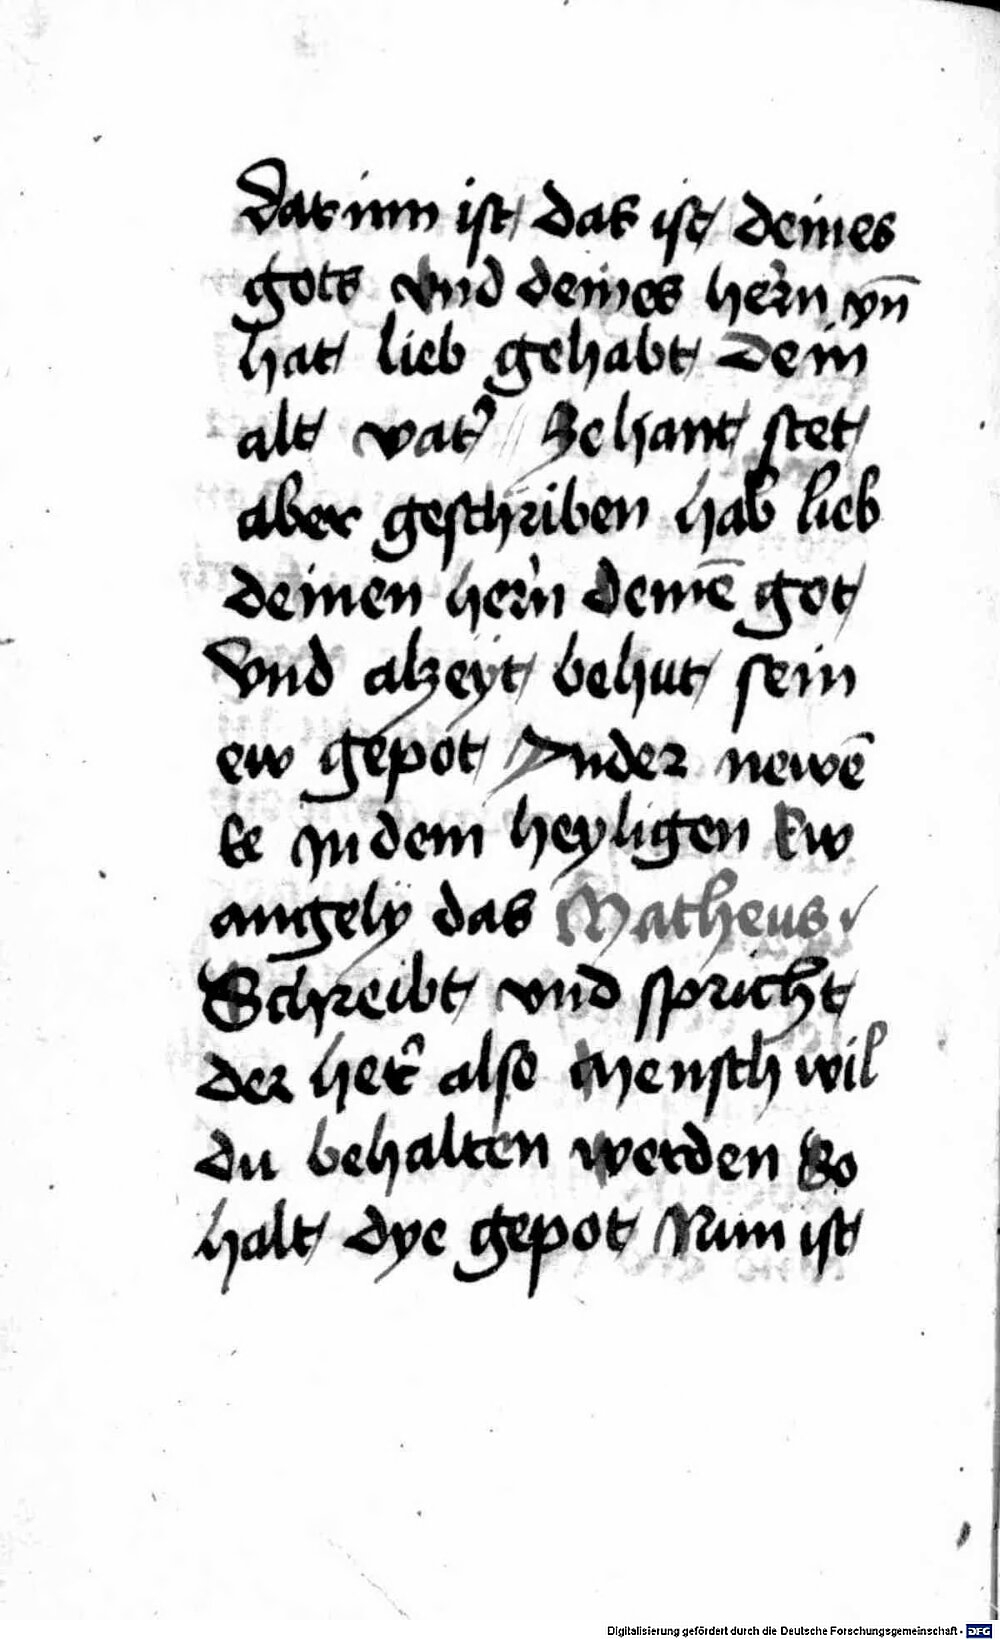 Darinn ist das ist deines
gots vnd deines hern vn̄
hat lieb gehabt dein
alt vat̓ Zehant stet
aber geschriben hab lieb
deinen hern deinē got
Vnd alzeyt behut sein
ew gepot Inder newē
Ee Indem heyligen Ew
angely das Matheus
Schreibt vnd spricht
der her̓ also Mensch wil
du behalten werden So
halt dye gepot Nun ist
Digitalisierung gefördert durch die Deutsche Forschungsgemeinschaft - DFG